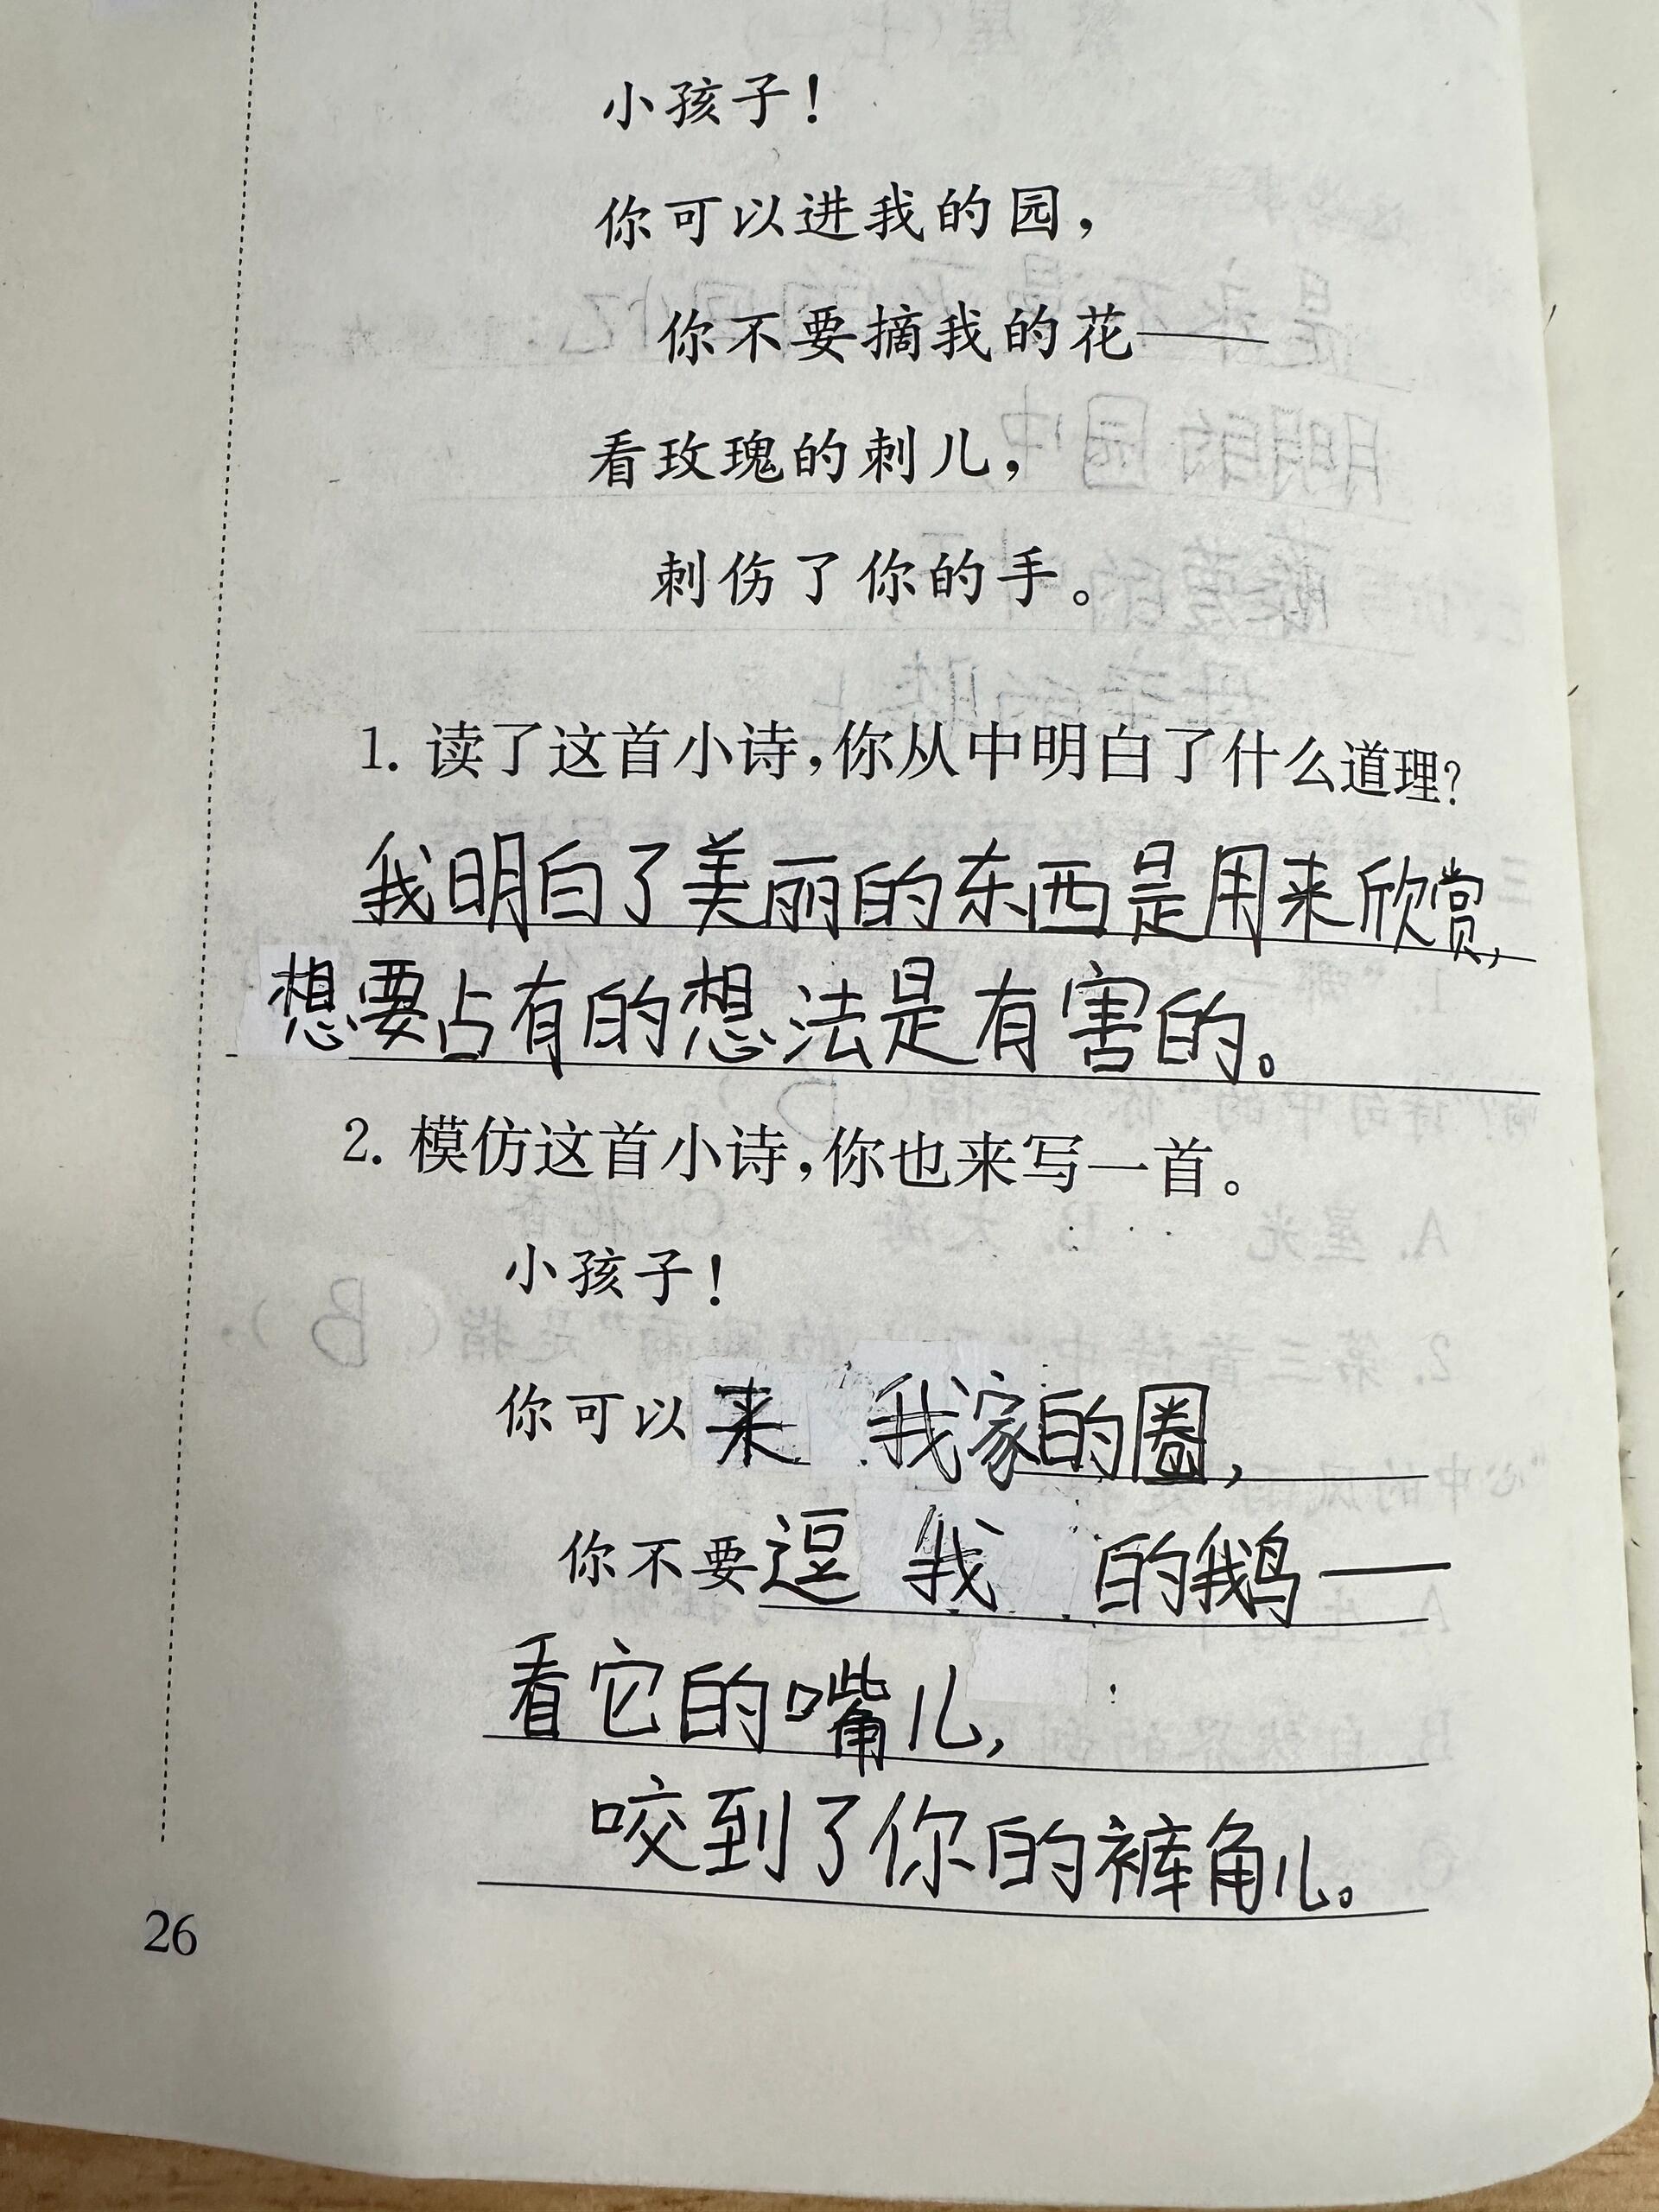 小孩子！
你可以进我的园，
你不要摘我的花——
看玫瑰的刺儿，
刺伤了你的手。
1. 读了这首小诗，你从中明白了什么道理？
我明白了美丽的东西是用来欣赏，
想要占有的想法是有害的。
2. 模仿这首小诗，你也来写一首。
小孩子！
你可以来 我家的圈，
你不要逗 我 的鹅——
看它的嘴儿，
咬到了你的裤角儿。
26